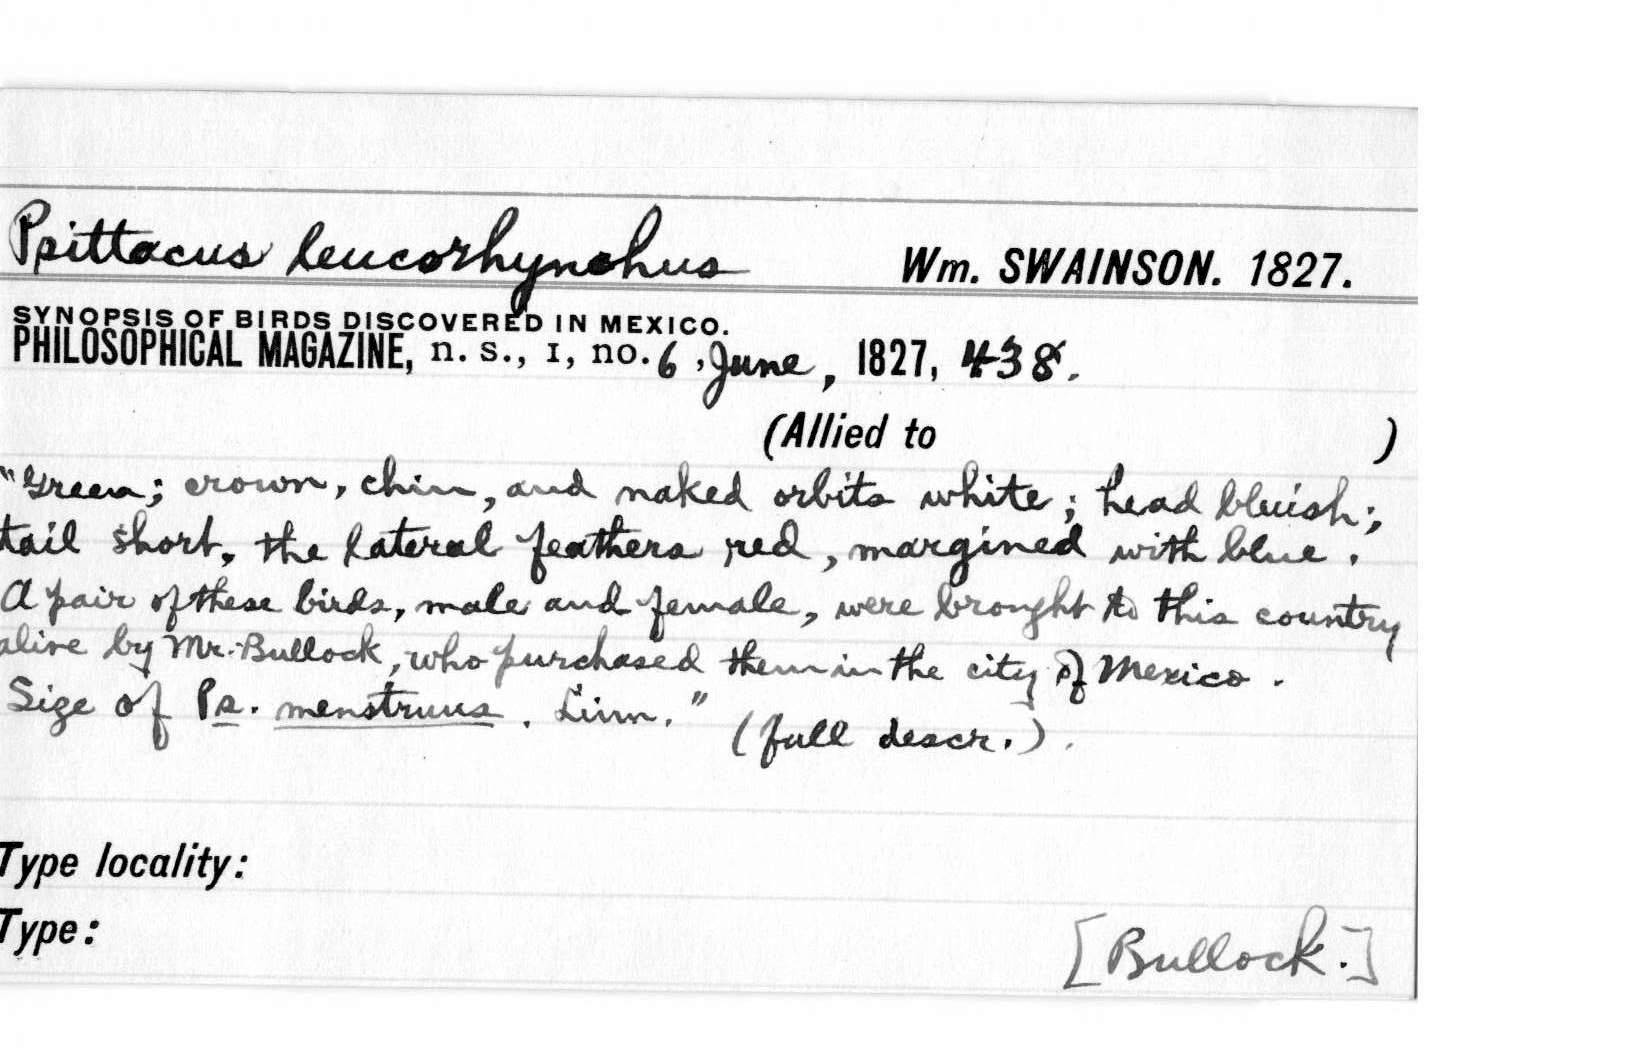 Psittacus leucorhynchus Wm. SWAINSON. 1827.
SYNOPSIS OF BIRDS DISCOVERED IN MEXICO.
PHILOSOPHICAL MAGAZINE, n. s., I, no. 6, June, 1827, 438.
(Allied to )
"Green; crown, chin, and naked orbits white; head bluish;
tail short, the lateral feathers red, margined with blue.
A pair of these birds, male and female, were brought to this country
alive by Mr. Bullock, who purchased them in the city of Mexico.
Size of Ps. menstruus. Linn." (full descr.).
Type locality:
Type:
[Bullock.]